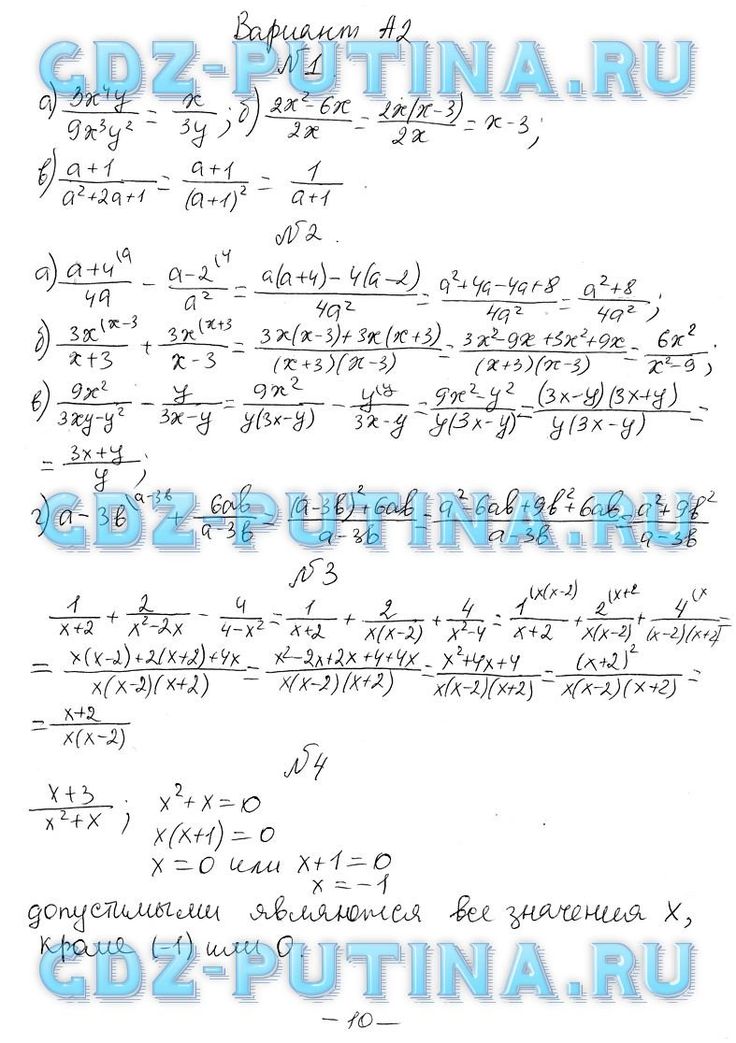 Вариант А2
GDZ-PUTINA.RU
№1.
а) 3x⁴y/9x³y² = x/3y; б) 2x²-6x/2x = 2x(x-3)/2x = x-3;
в) a+1/a²+2a+1 = a+1/(a+1)² = 1/a+1.
№2.
а) a+4⁽ᵃ/4a - a-2⁽⁴/a² = a(a+4)-4(a-2)/4a² = a²+4a-4a+8/4a² = a²+8/4a²;
б) 3x⁽ˣ⁻³/x+3 + 3x⁽ˣ⁺³/x-3 = 3x(x-3)+3x(x+3)/(x+3)(x-3) = 3x²-9x+3x²+9x/(x+3)(x-3) = 6x²/x²-9;
в) 9x²/3xy-y² - y/3x-y = 9x²/y(3x-y) - y⁽ʸ/3x-y = 9x²-y²/y(3x-y) = (3x-y)(3x+y)/y(3x-y) =
= 3x+y/y;
GDZ-PUTINA.RU
г) a-3в⁽ᵃ⁻³ᵇ + 6aв/a-3в = (a-3в)²+6aв/a-3в = a²-6aв+9в²+6aв/a-3в = a²+9в²/a-3в
№3
1/x+2 + 2/x²-2x - 4/4-x² = 1/x+2 + 2/x(x-2) + 4/x²-4 = 1⁽ˣ⁽ˣ⁻²⁾/x+2 + 2⁽ˣ⁺²/x(x-2) + 4⁽ˣ/(x-2)(x+2) =
= x(x-2)+2(x+2)+4x/x(x-2)(x+2) = x²-2x+2x+4+4x/x(x-2)(x+2) = x²+4x+4/x(x-2)(x+2) = (x+2)²/x(x-2)(x+2) =
= x+2/x(x-2)
GDZ-PUTINA.RU
№4
x+3/x²+x; x²+x=0
x(x+1)=0
x=0 или x+1=0
x=-1
допустимыми являются все значения x,
кроме (-1) или 0.
GDZ-PUTINA.RU
-10-